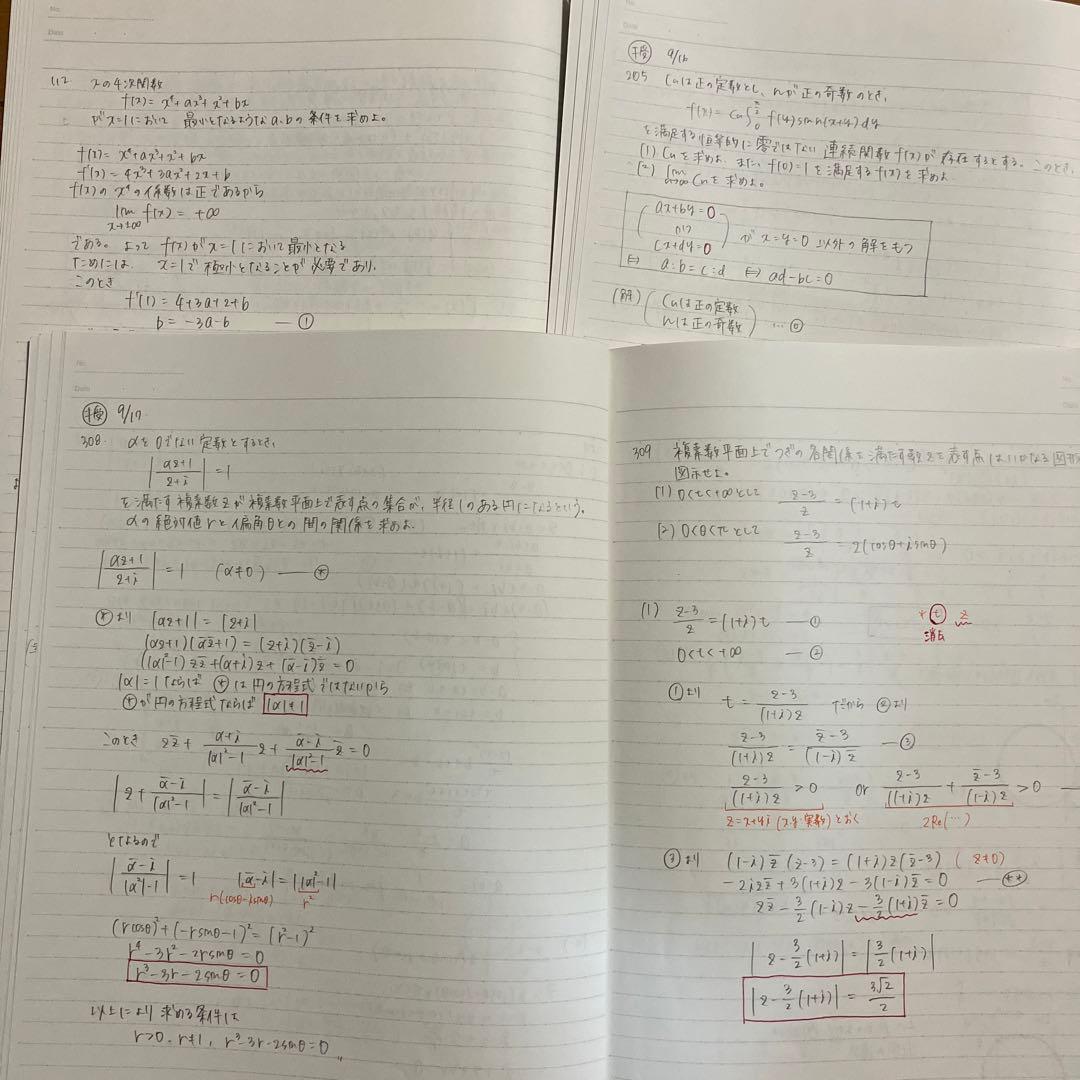 No.
Date
112 xの4次関数
f(x) = x⁴ + ax³ + x² + bx
がx=1において 最小となるようなa,bの条件を求めよ。
f(x) = x⁴ + ax³ + x² + bx
f'(x) = 4x³ + 3ax² + 2x + b
f(x)の x⁴の係数は正であるから
lim f(x) = +∞
x→±∞
である。よって f(x)がx=1において最小となる
ためには、 x=1で極小となることが必要であり、
このとき
f'(1) = 4+3a+2+b
b = -3a-6 ― ①
Date
9/16
205 Cnは正の定数とし、nが正の奇数のとき、
f(x) = Cn∫₀^(π/2) f(y) sin n(x+y) dy
を満足する恒等的に零ではない 連続関数f(x)が存在するとする。このとき、
(1) Cnを求めよ。また、f(0)=1を満足するf(x)を求めよ
(2) lim Cnを求めよ。
n→∞
ax+by=0
かつ がx=y=0以外の解をもつ
cx+dy=0
⇔ a:b = c:d ⇔ ad-bc=0
(解) Cnは正の定数
nは正の奇数 …⓪
No.
Date
9/17
308 αを0でない定数とするとき、
|(αz+1)/(z+i)| = 1
を満たす複素数zが複素数平面上で表す点の集合が、半径1のある円になるという。
αの絶対値rと偏角θとの間の関係を求めよ
|(αz+1)/(z+i)| = 1 (α≠0) ― ⊛
⊛より |αz+1| = |z+i|
(αz+1)(ᾱz̄+1) = (z+i)(z̄-i)
(|α|²-1)zz̄+(α+i)z+(ᾱ-i)z̄=0
|α|=1ならば ⊛は円の方程式ではないから
⊛が円の方程式ならば |α|≠1
このとき zz̄ + (α+i)/(|α|²-1) z + (ᾱ-i)/(|α|²-1) z̄ = 0
|z + (ᾱ-i)/(|α|²-1)| = |(ᾱ-i)/(|α|²-1)|
となるので
|(ᾱ-i)/(|α|²-1)| = 1 |ᾱ-i| = ||α|²-1|
r(cosθ-isinθ) r²
(rcosθ)²+(-rsinθ-1)² = (r²-1)²
r⁴-3r²-2rsinθ=0
r³-3r-2sinθ=0
以上により 求める条件は
r>0, r≠1, r³-3r-2sinθ=0
309 複素数平面上でつぎの各関係を満たす数zを表す点はいかなる図形
図示せよ。
(1) 0<t<+∞として (z-3)/z = (1+i)t
(2) 0<θ<πとして (z-3)/z = 2(cosθ+isinθ)
(1) (z-3)/z = (1+i)t ― ①
0<t<+∞ ― ②
t z
消去
①より t = (z-3)/((1+i)z) だから ②より
(z-3)/((1+i)z) = (z̄-3)/((1-i)z̄) ― ③
(z-3)/((1+i)z) > 0 or (z-3)/((1+i)z) + (z̄-3)/((1-i)z̄) > 0
z=x+yi (x,y:実数)とおく 2Re(…)
③より (1-i)z̄(z-3) = (1+i)z(z̄-3) (z≠0)
-2izz̄+3(1+i)z-3(1-i)z̄=0 ―
zz̄-3/2(1-i)z-3/2(1+i)z̄=0
|z-3/2(1+i)| = |3/2(1+i)|
|z-3/2(1+i)| = 3√2/2